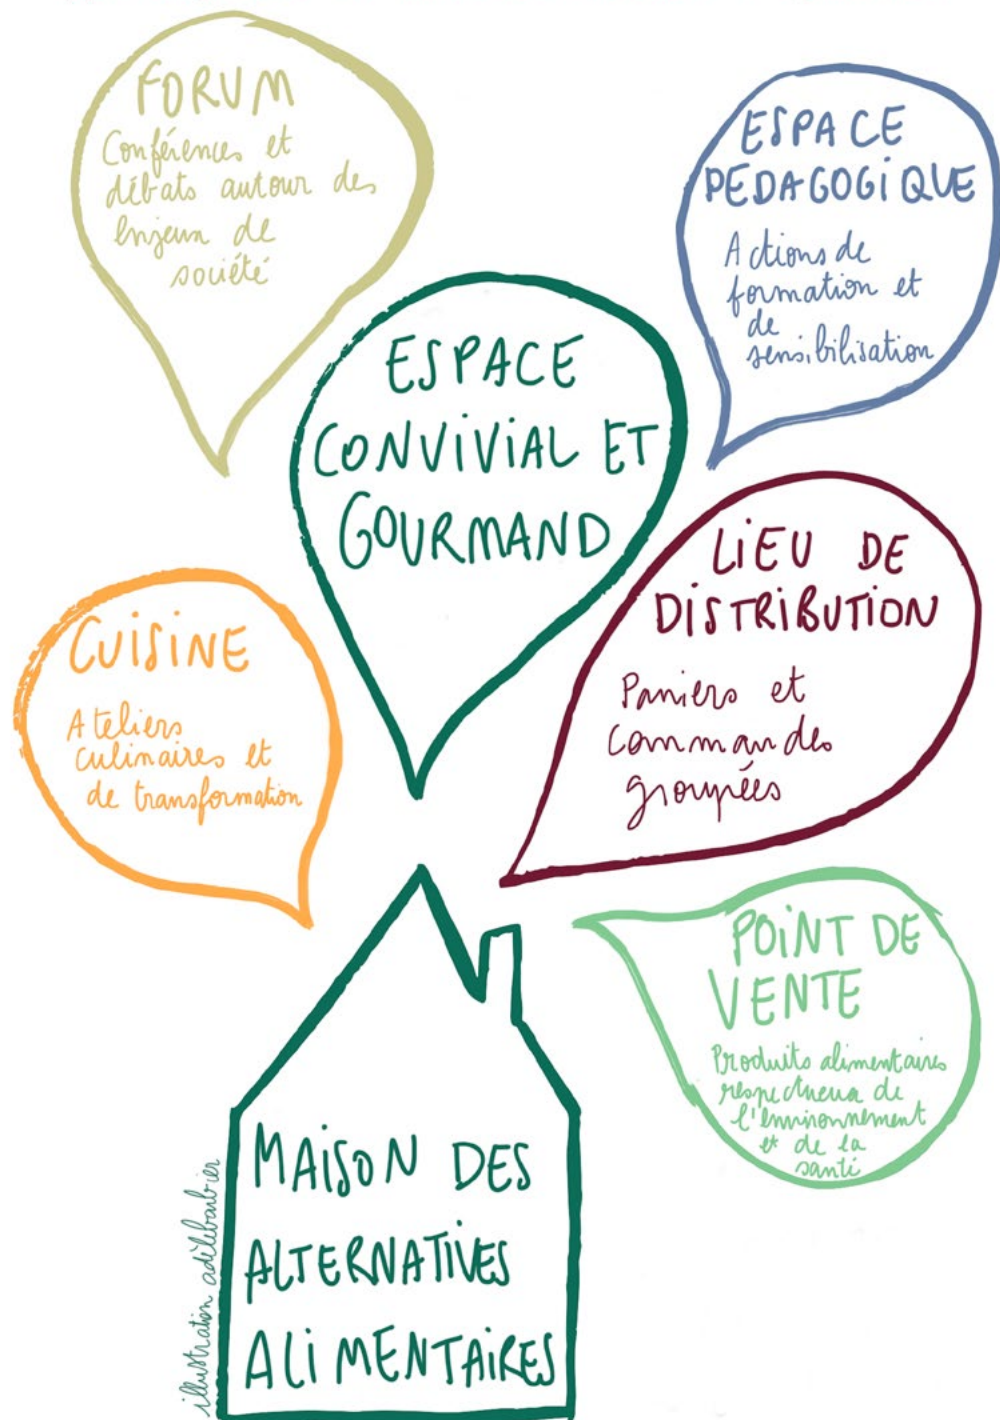 FORUM
Conférences et
débats autour des
enjeux de
société
ESPACE
PEDAGOGIQUE
Actions de
formation et
de
sensibilisation
ESPACE
CONVIVIAL ET
GOURMAND
LIEU DE
DISTRIBUTION
Paniers et
commandes
groupées
CUISINE
Ateliers
culinaires et
de transformation
POINT DE
VENTE
Produits alimentaires
respectueux de
l'environnement
et de la
santé
MAISON DES
ALTERNATIVES
ALIMENTAIRES
illustration adèlebarbier